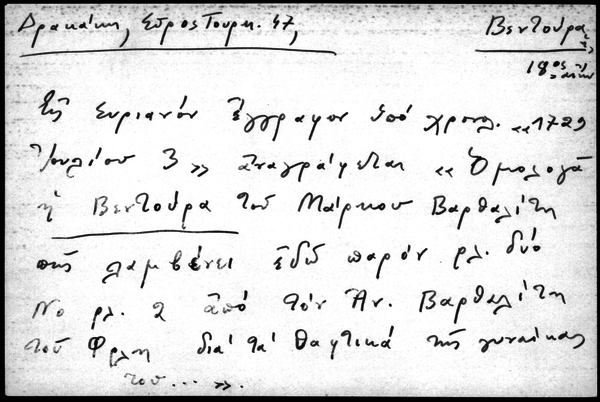 Δρακάκη, Σῦρος Τουρκ. 47,
Βεντούρα,
18ος αἰών
Εἰς συριανόν ἔγγραφον ὑπό χρονλ. «1729
Ἰουλίου 3» ἀναγράφεται «Ὁμολογᾶ
ἡ Βεντούρα τοῦ Μάρκου Βαρθαλίτη
πῶς λαμβένει ἐδῶ παρόν ρλ. δυό
Νο ρλ. 2 ἀπό τόν Ἀν. Βαρθαλίτη
τοῦ Φρλη διά τά θαφτικά τῆς γυναίκας
του...».